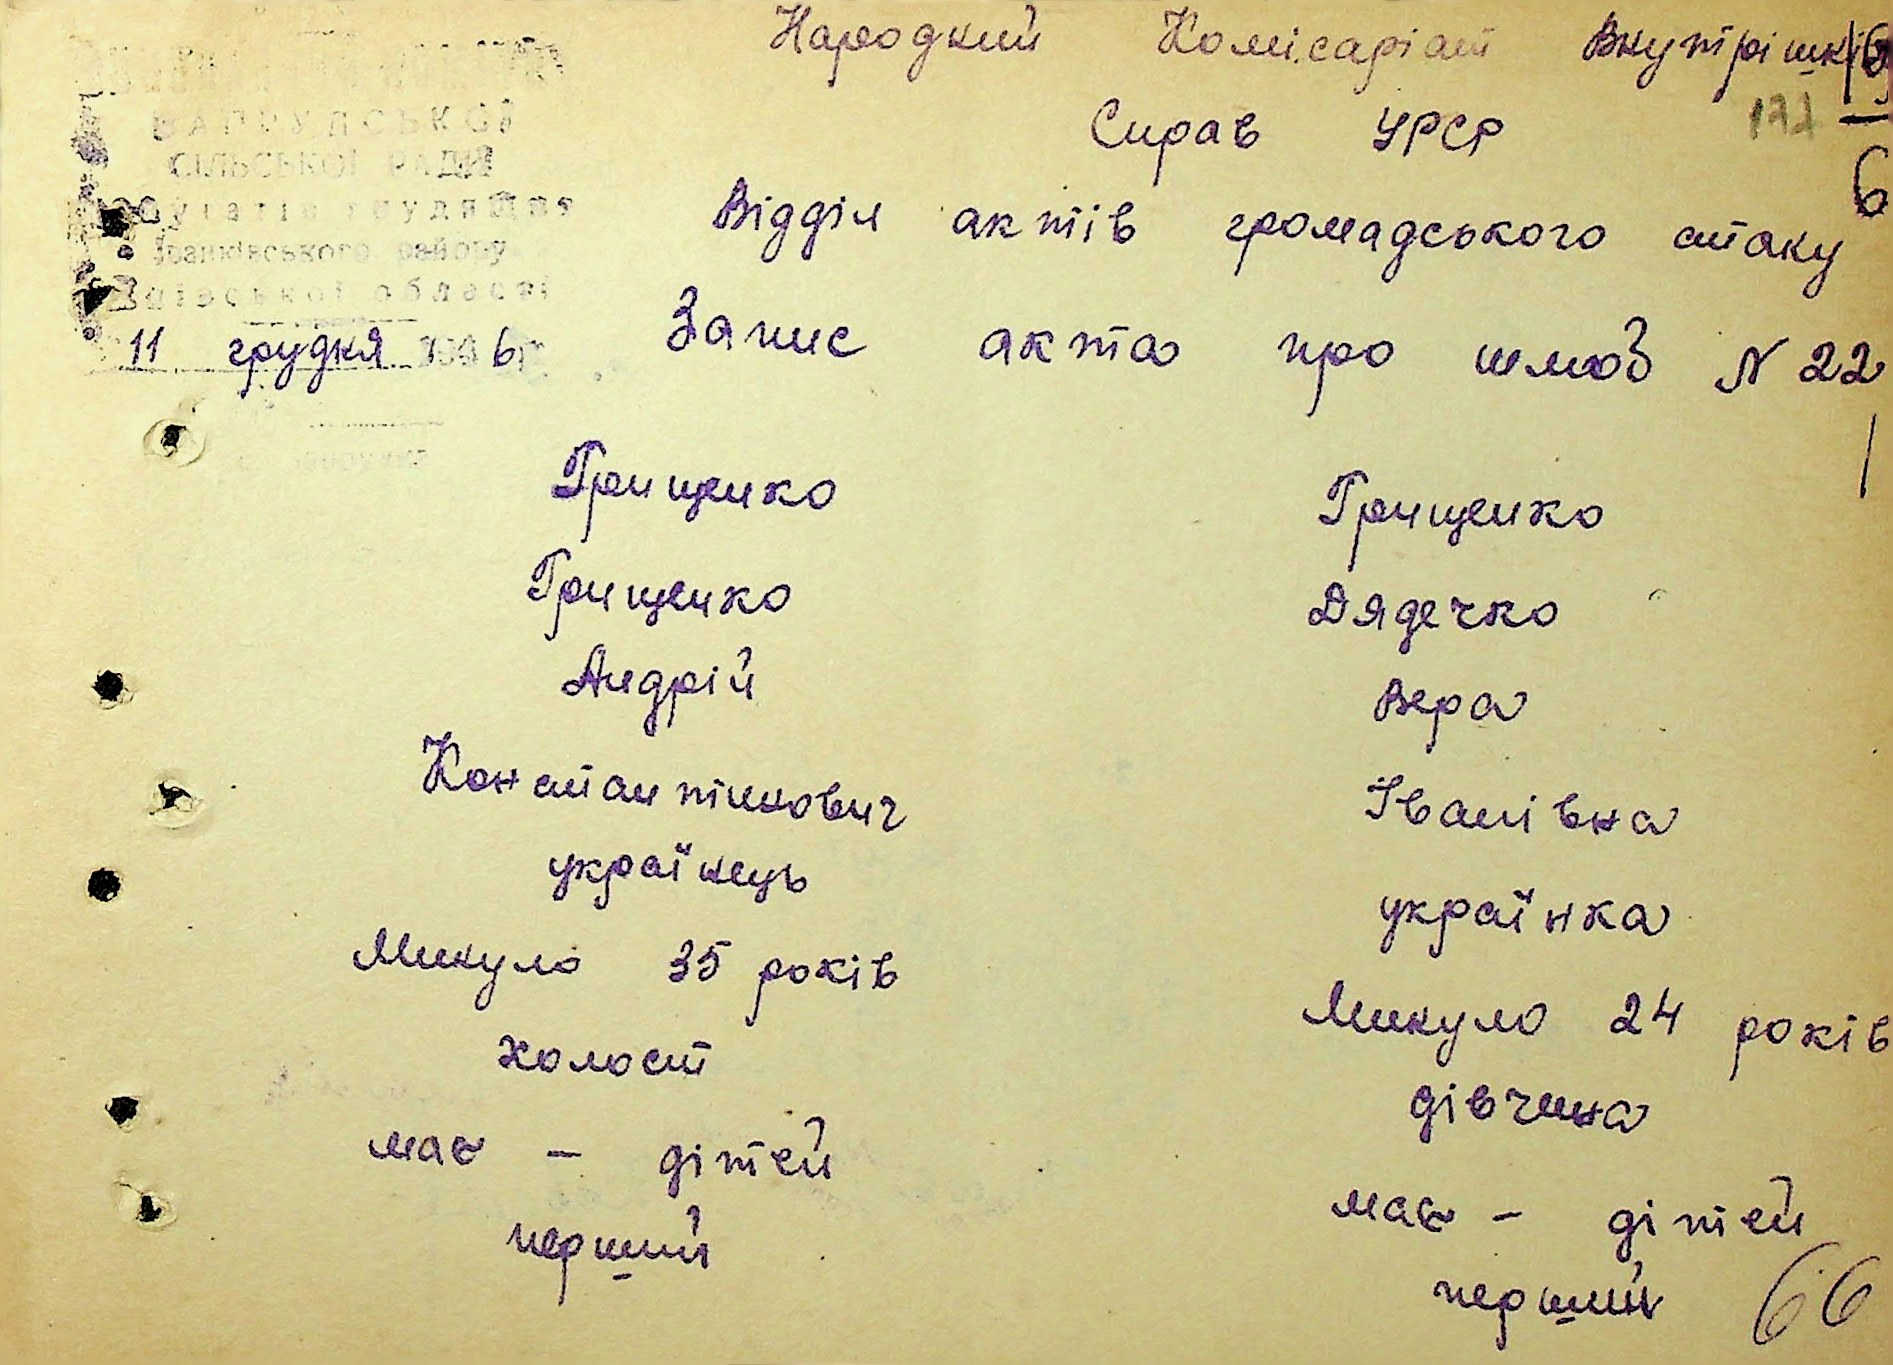 Народний Комісаріат Внутрішніх
Справ УРСР
122
6
Відділ актів громадського стану
СІЛЬСЬКОЇ РАДИ
Іванківського району
Київської області
11 грудня 1946 р
Запис акта про шлюб N 22
Грищенко Грищенко
Грищенко Дядечко
Андрій Вера
Константінович Іванівна
українець українка
Минуло 35 років Минуло 24 років
холост дівчина
має – дітей має – дітей
перший перший
66